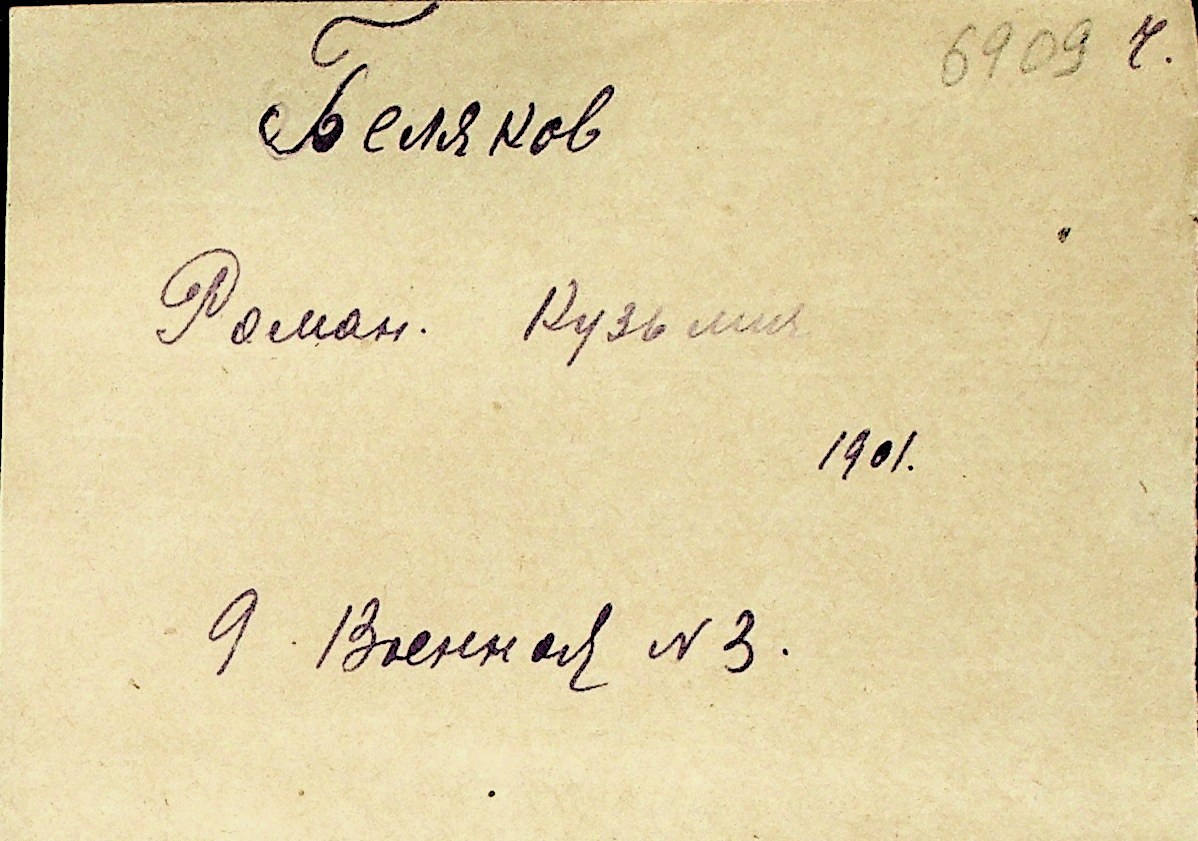 6909 ч.
Беляков
Роман. Кузьмич
1901.
9 Военная N 3.